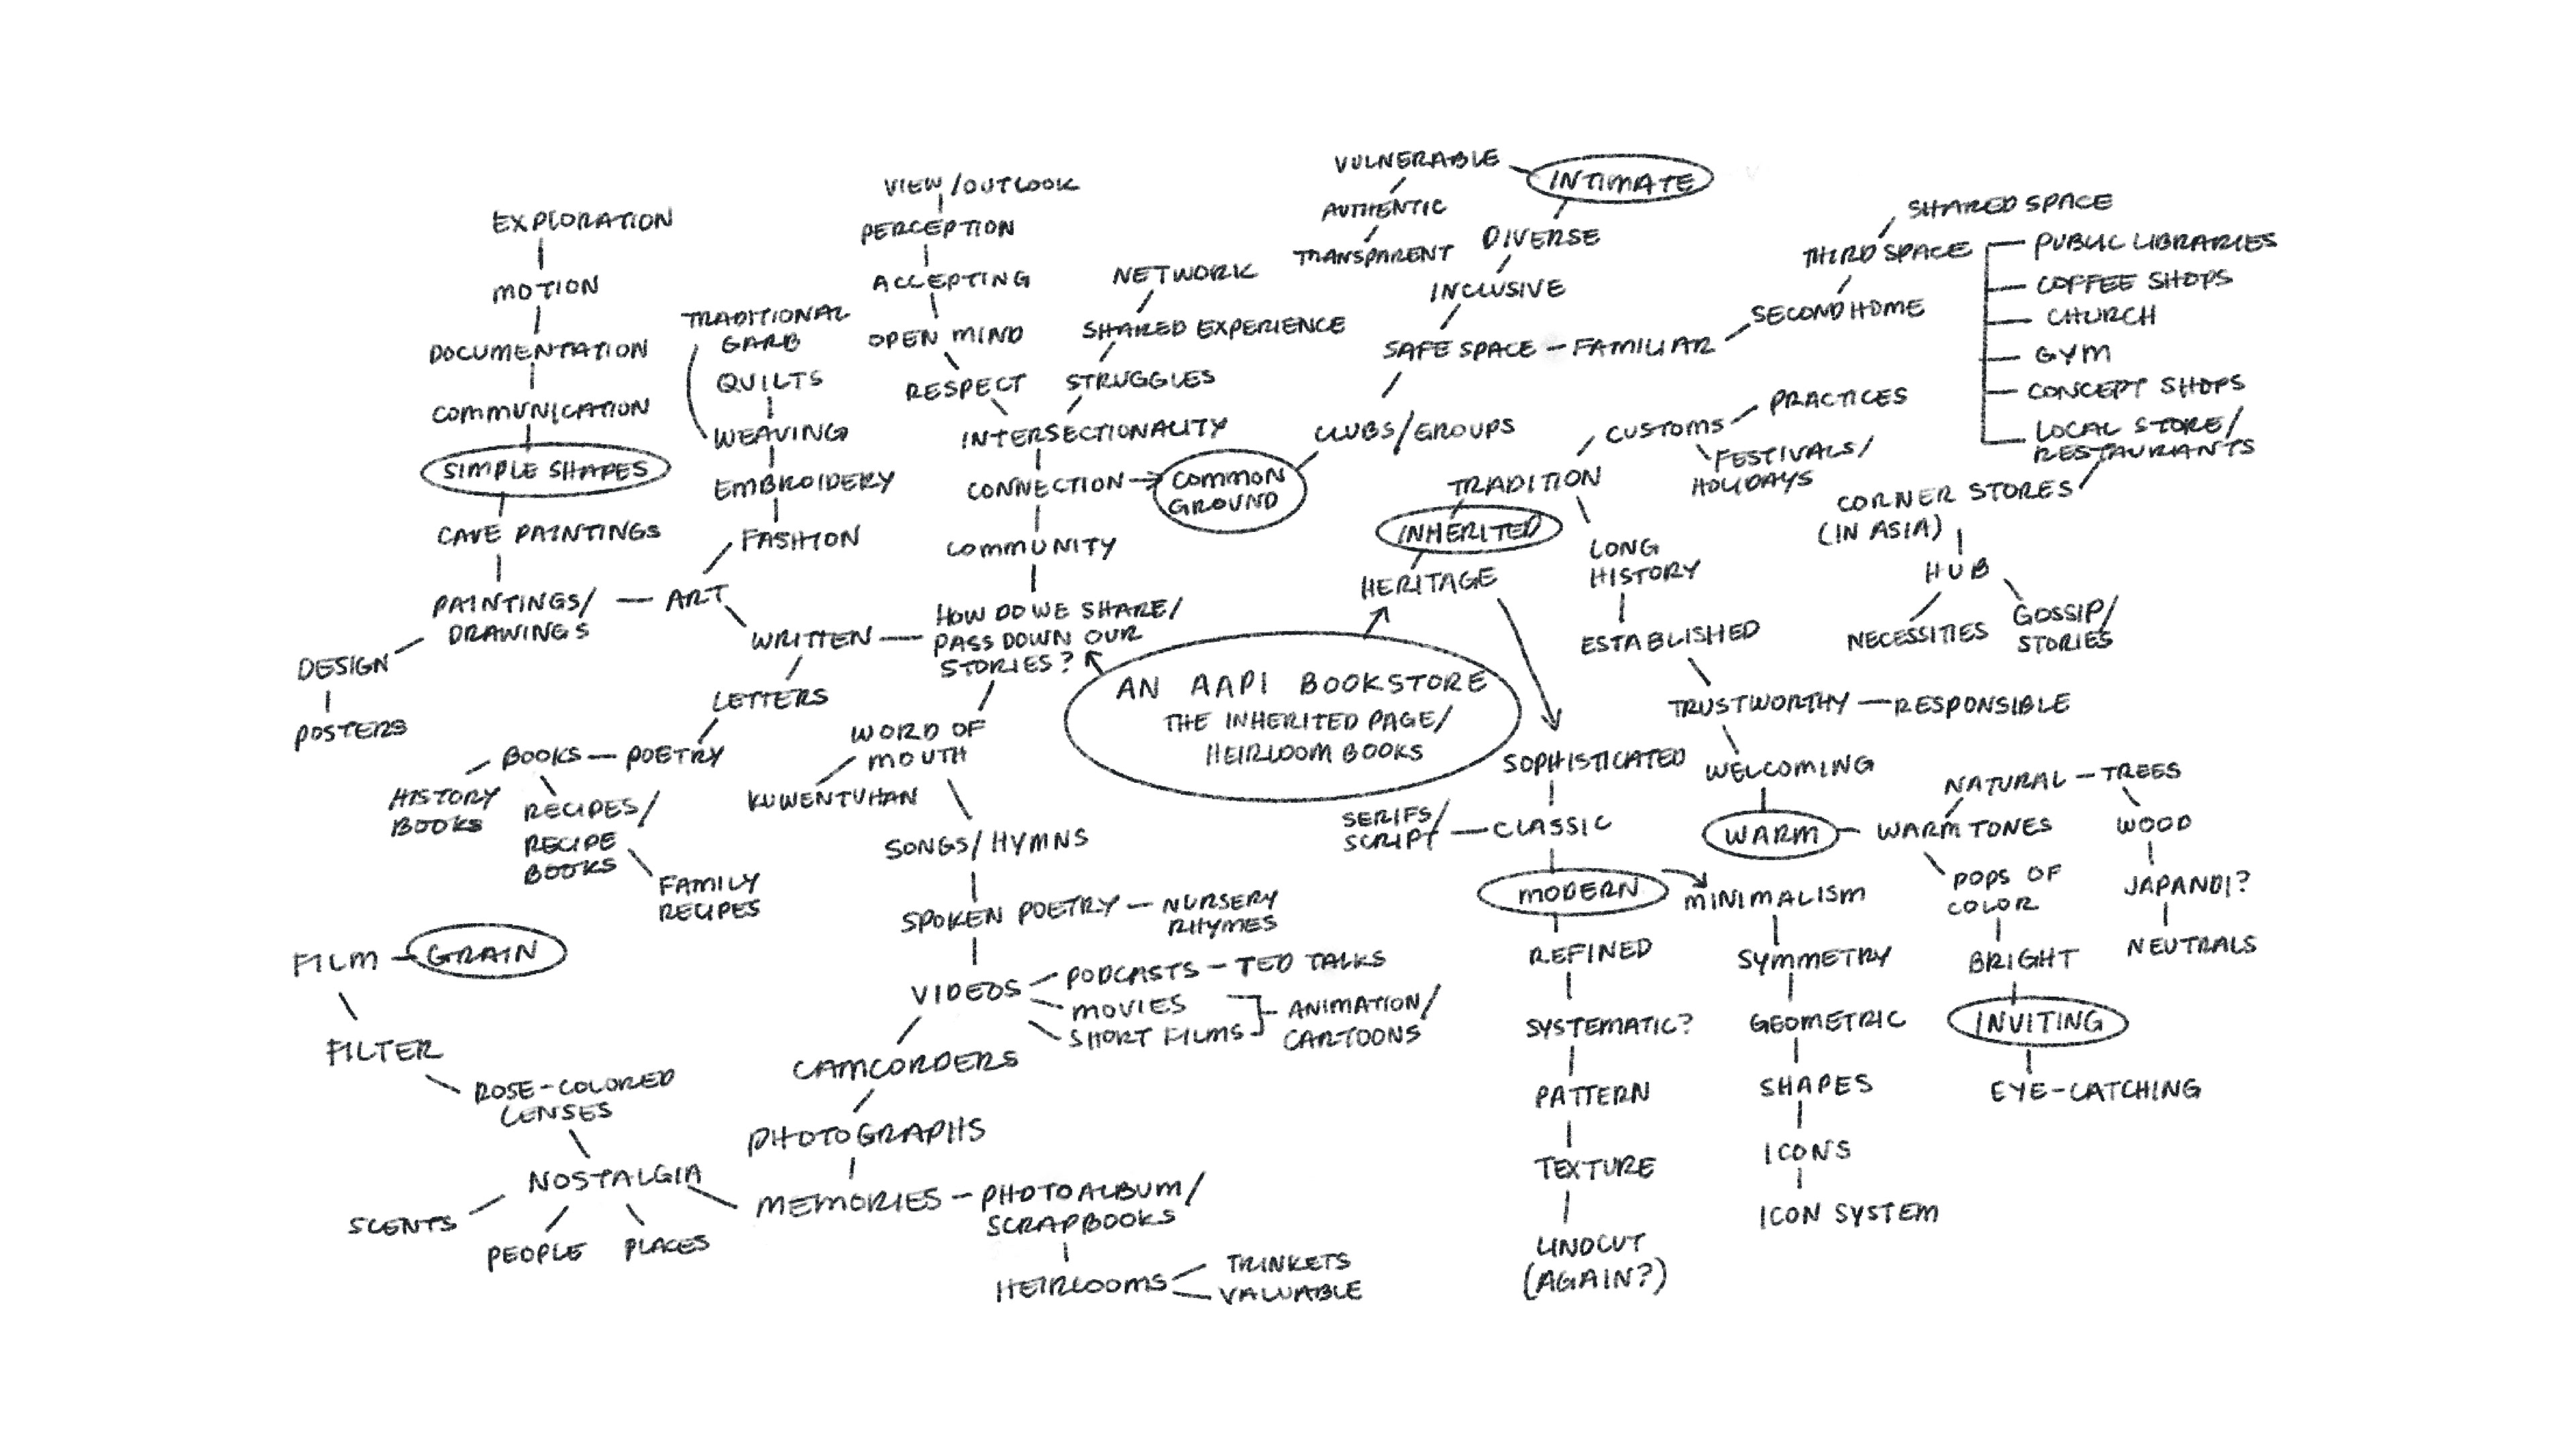 AN AAPI BOOKSTORE
THE INHERITED PAGE/
HEIRLOOM BOOKS
HOW DO WE SHARE/
PASS DOWN OUR
STORIES?
COMMUNITY
CONNECTION
COMMON
GROUND
INTERSECTIONALITY
RESPECT
OPEN MIND
ACCEPTING
PERCEPTION
VIEW/OUTLOOK
STRUGGLES
SHARED EXPERIENCE
NETWORK
CLUBS/GROUPS
SAFE SPACE
INCLUSIVE
DIVERSE
INTIMATE
VULNERABLE
AUTHENTIC
TRANSPARENT
FAMILIAR
SECOND HOME
THIRD SPACE
SHARED SPACE
PUBLIC LIBRARIES
COFFEE SHOPS
CHURCH
GYM
CONCEPT SHOPS
LOCAL STORE/
RESTAURANTS
CORNER STORES
(IN ASIA)
HUB
NECESSITIES
GOSSIP/
STORIES
WRITTEN
ART
FASHION
EMBROIDERY
WEAVING
QUILTS
TRADITIONAL
GARB
PAINTINGS/
DRAWINGS
CAVE PAINTINGS
SIMPLE SHAPES
COMMUNICATION
DOCUMENTATION
MOTION
EXPLORATION
DESIGN
POSTERS
LETTERS
POETRY
BOOKS
HISTORY
BOOKS
RECIPES/
RECIPE
BOOKS
FAMILY
RECIPES
WORD OF
MOUTH
KUWENTUHAN
SONGS/HYMNS
SPOKEN POETRY
NURSERY
RHYMES
VIDEOS
PODCASTS
TED TALKS
MOVIES
SHORT FILMS
ANIMATION/
CARTOONS
CAMCORDERS
PHOTOGRAPHS
MEMORIES
PHOTOALBUM/
SCRAPBOOKS
HEIRLOOMS
TRINKETS
VALUABLE
NOSTALGIA
SCENTS
PEOPLE
PLACES
ROSE-COLORED
LENSES
FILTER
FILM
GRAIN
HERITAGE
INHERITED
TRADITION
CUSTOMS
PRACTICES
FESTIVALS/
HOLIDAYS
LONG
HISTORY
ESTABLISHED
TRUSTWORTHY
RESPONSIBLE
WELCOMING
WARM
WARM TONES
NATURAL
TREES
WOOD
JAPANDI?
NEUTRALS
POPS OF
COLOR
BRIGHT
INVITING
EYE-CATCHING
SOPHISTICATED
CLASSIC
SERIFS/
SCRIPT
MODERN
REFINED
SYSTEMATIC?
PATTERN
TEXTURE
LINOCUT
(AGAIN?)
MINIMALISM
SYMMETRY
GEOMETRIC
SHAPES
ICONS
ICON SYSTEM